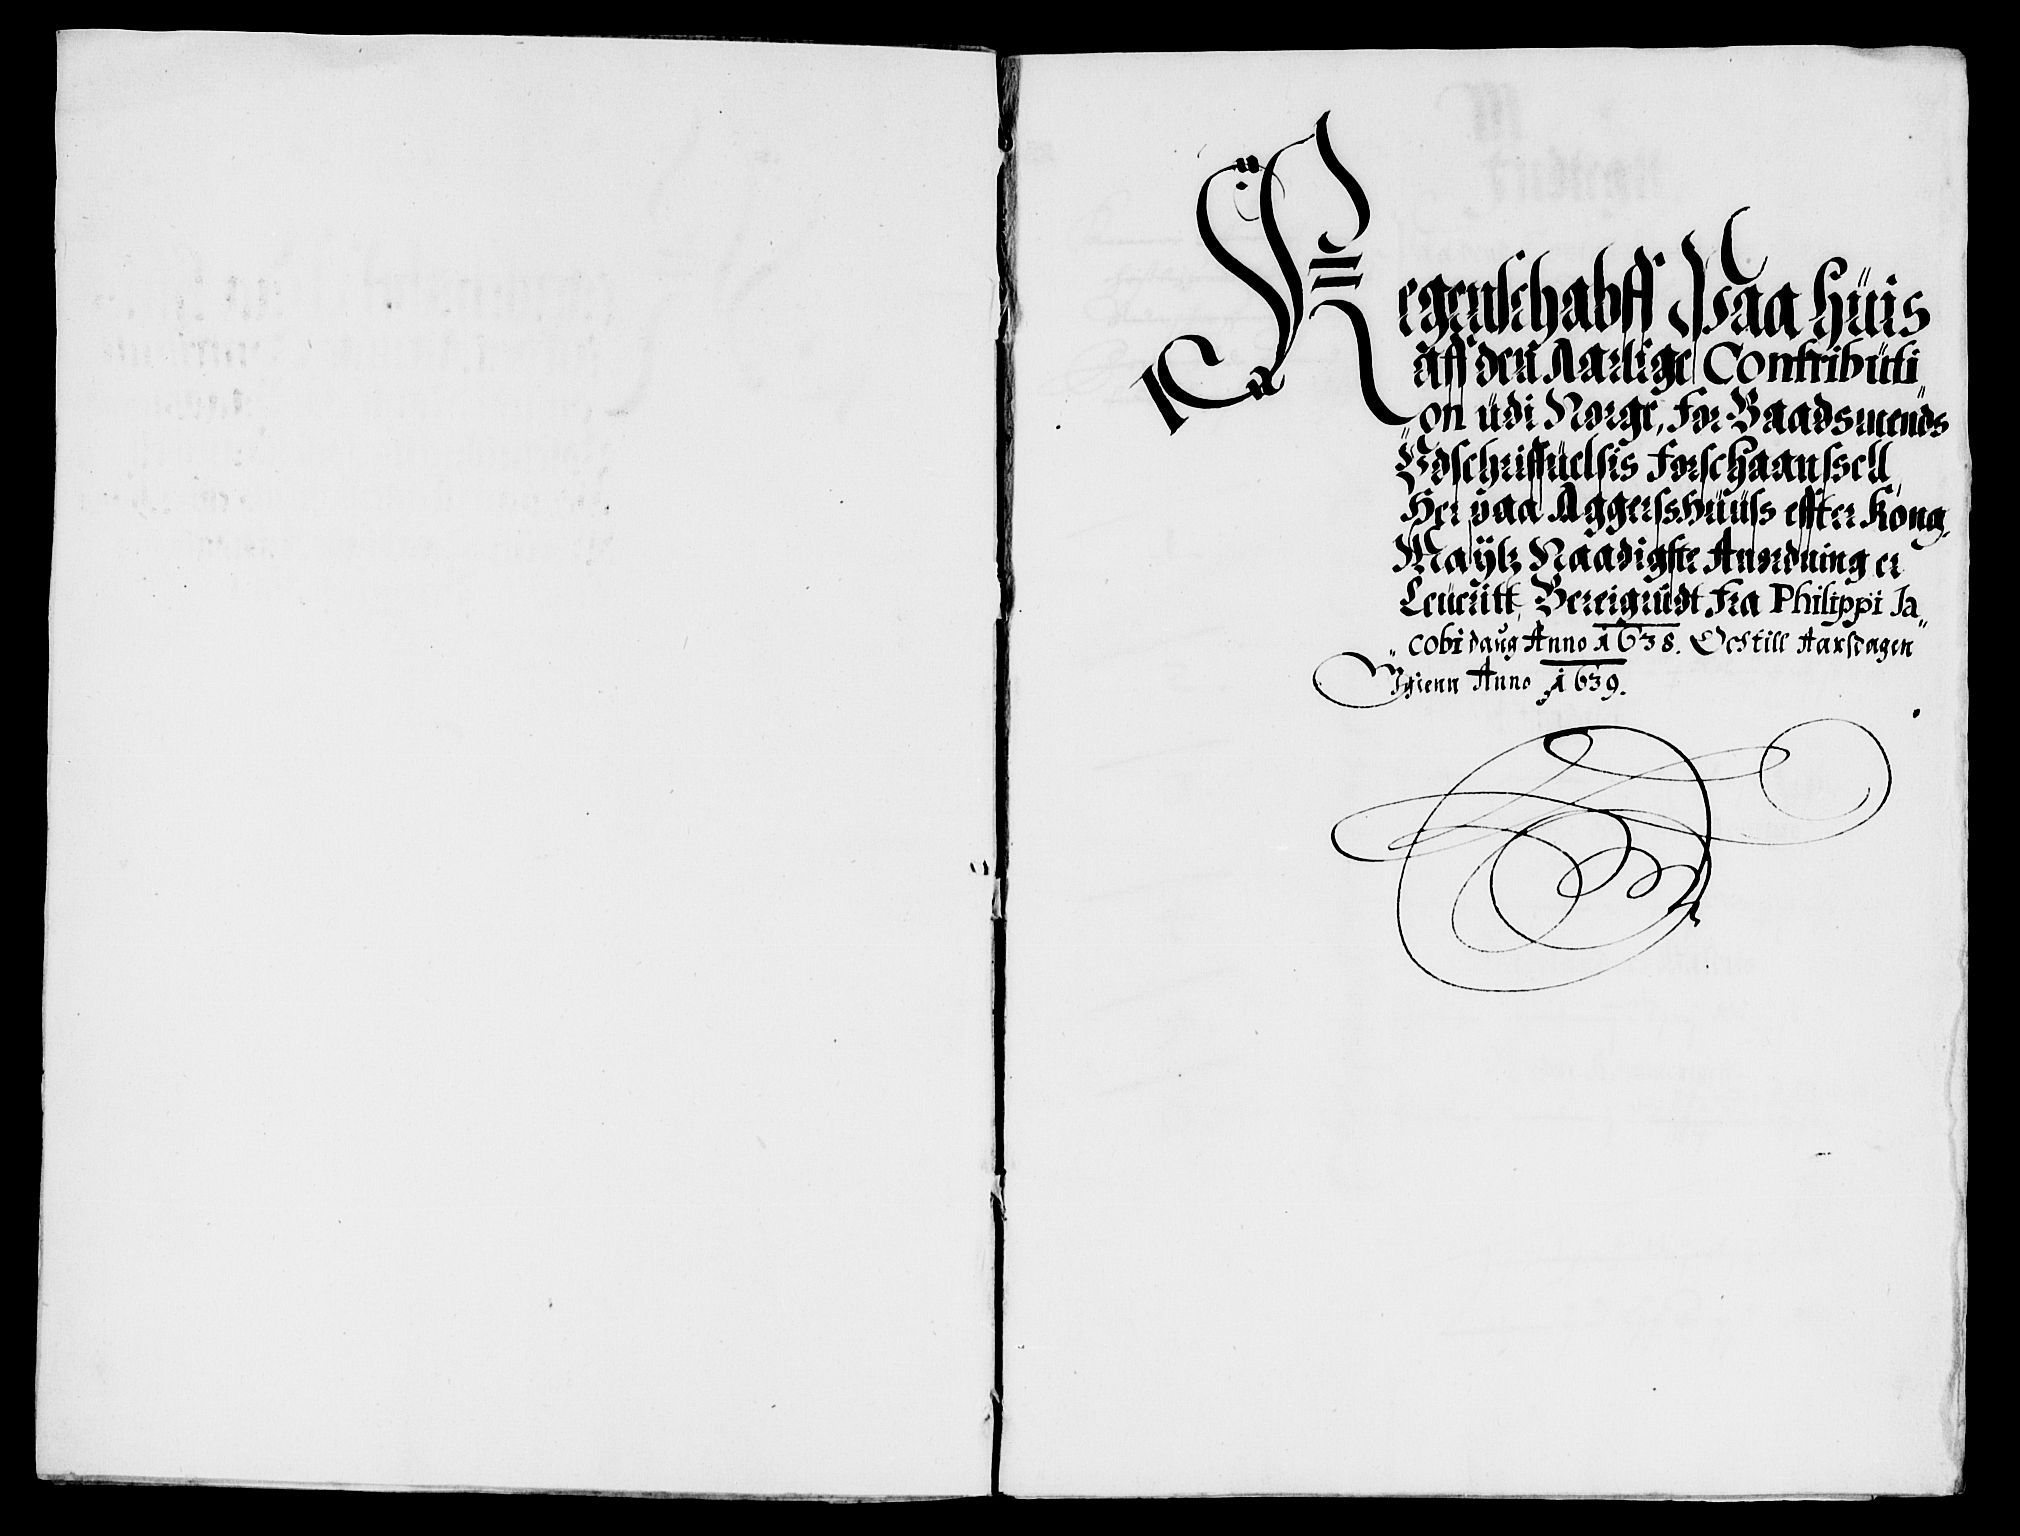 Regenschabff Paa hüis
aff den Aarlige Contributi„
„on üdi Norge, for Baadsmends
Vdschriffüelsis forschaanssell,
Her paa Aggersshüüss effter Kong.
Maÿtz Naadigste Anordning er
Leüeritt, Bereignidt fra Philippi Ja„
„cobi daug Anno 1638. Och till Aarsdagen
Igienn Anno 1639.